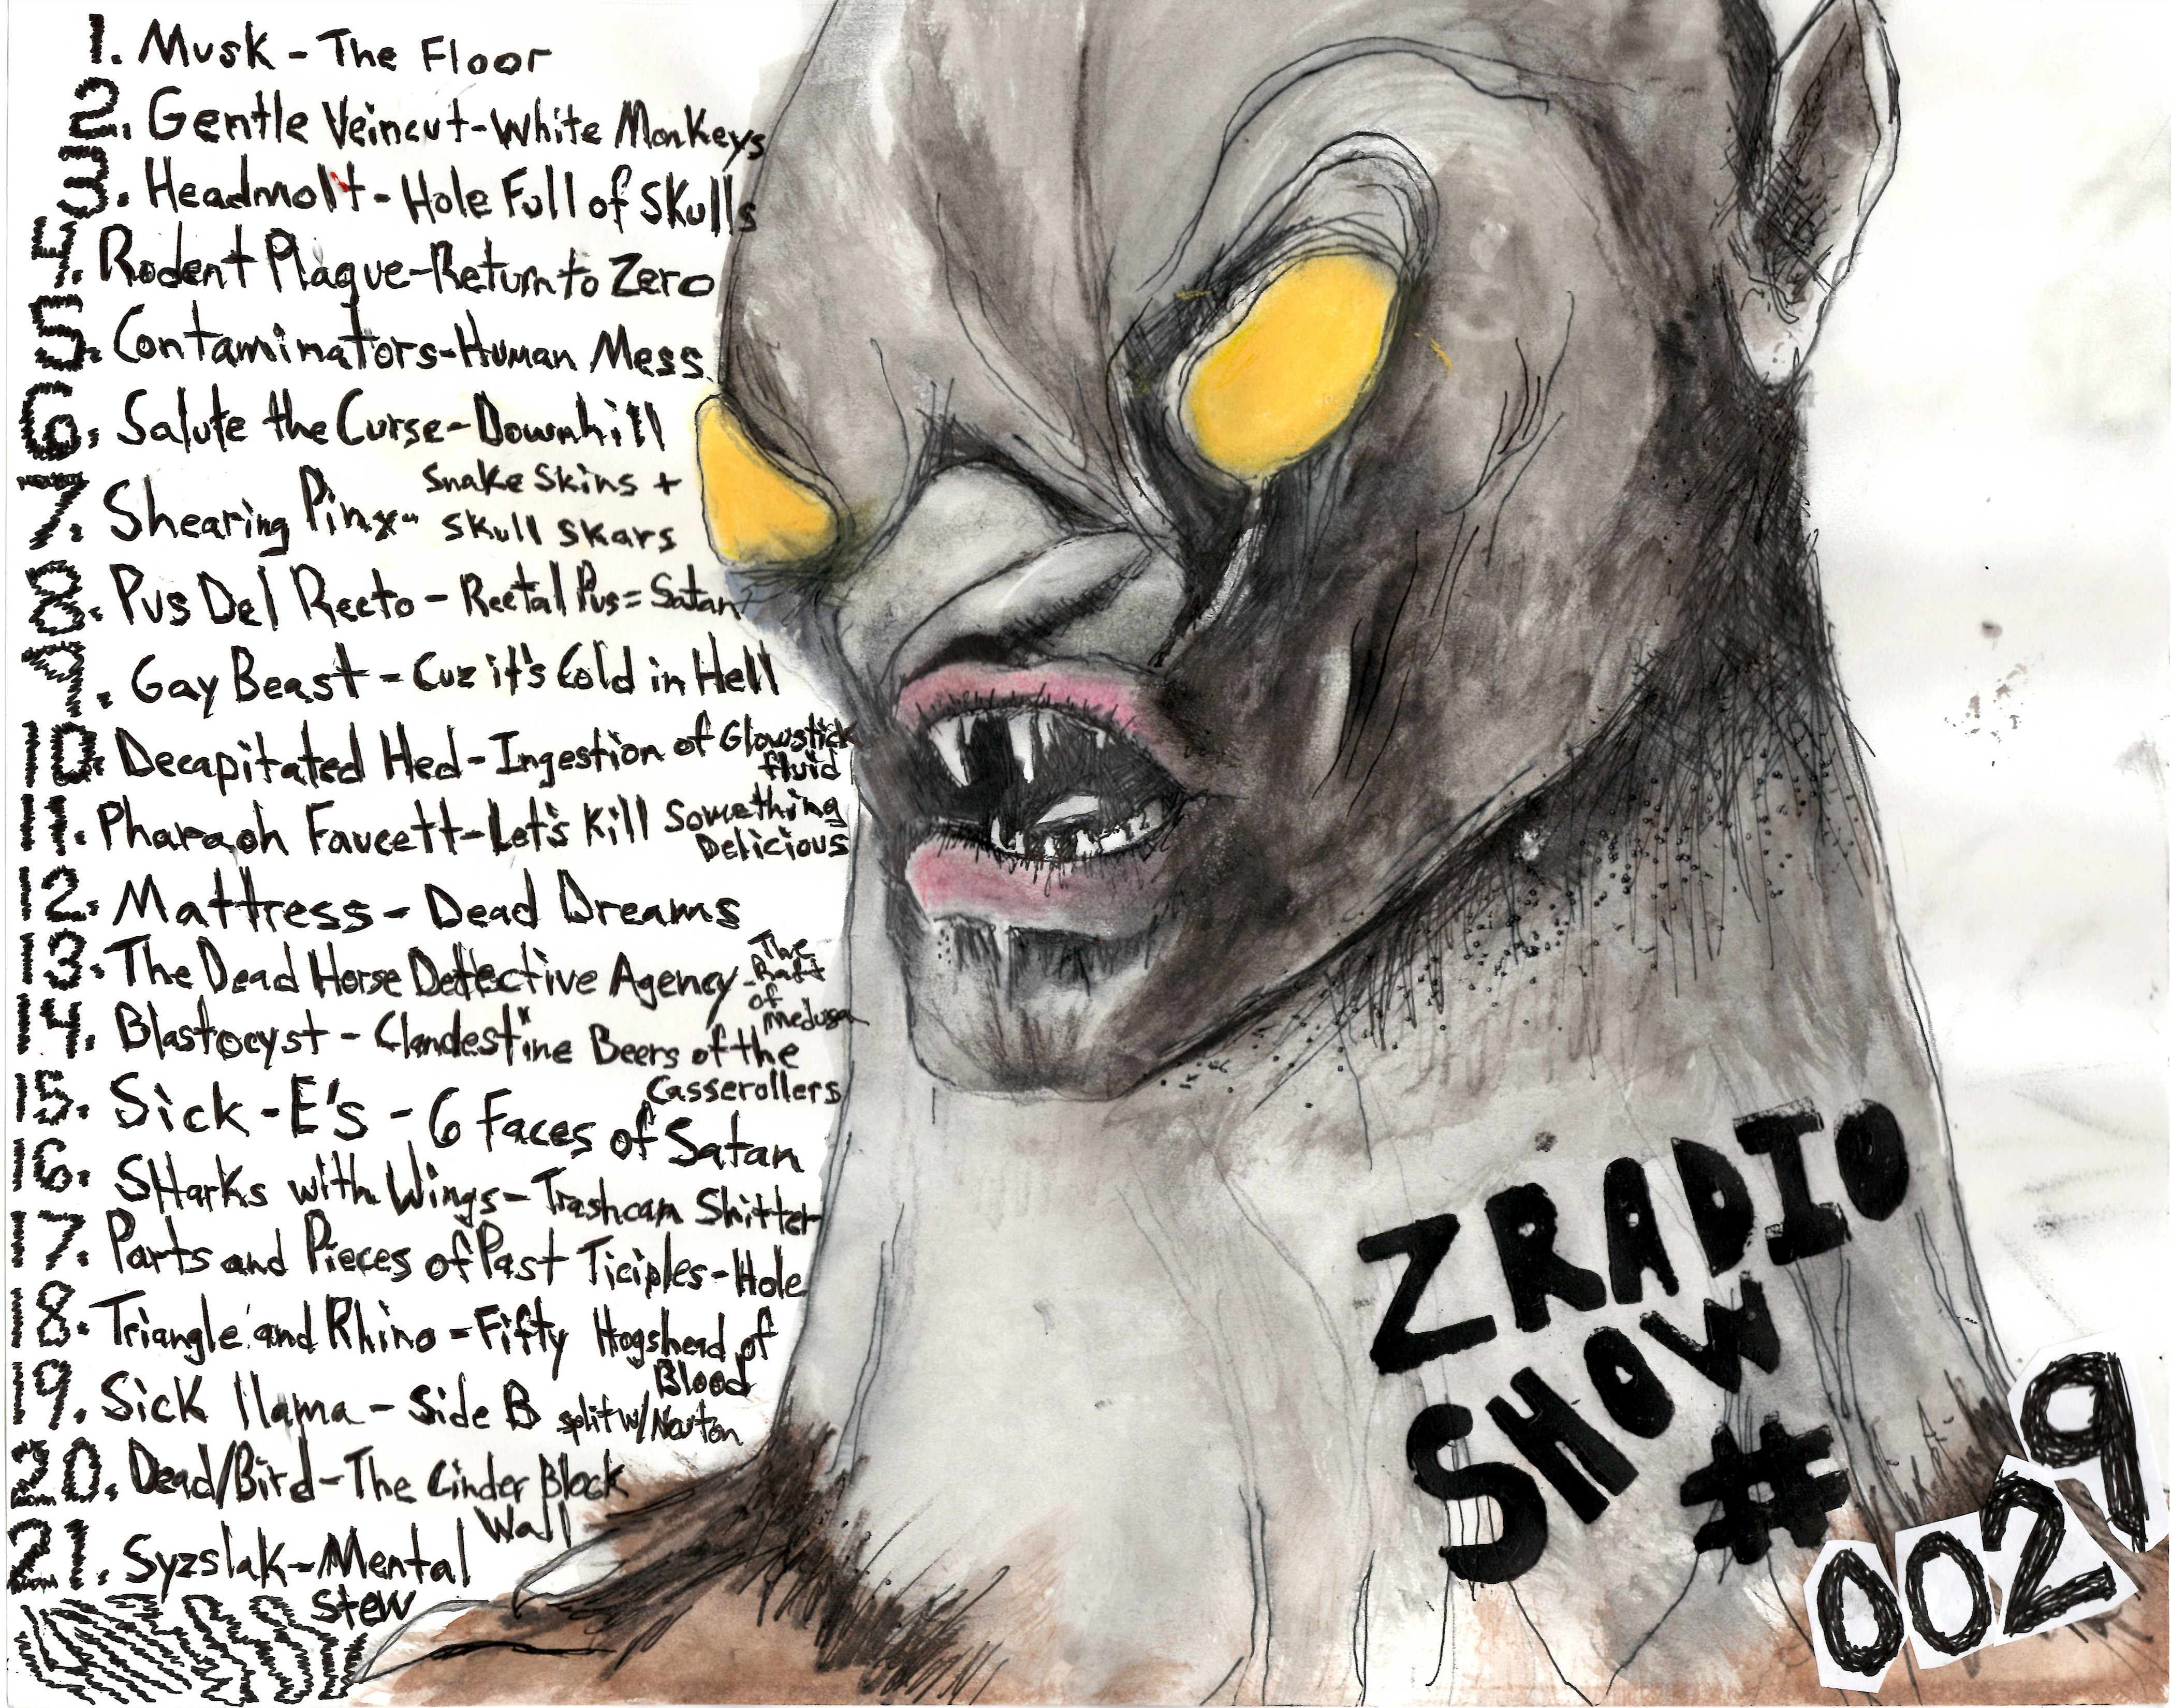 1. Musk - The Floor
2. Gentle Veincut - White Monkeys
3. Headmolt - Hole Full of Skulls
4. Rodent Plague - Return to Zero
5. Contaminators - Human Mess
6. Salute the Curse - Downhill
7. Shearing Pinx - Snake Skins +
Skull Skars
8. Pus Del Recto - Rectal Pus = Satan
9. Gay Beast - Cuz it's Cold in Hell
10. Decapitated Hed - Ingestion of Glowstick
fluid
11. Pharaoh Faucett - Let's Kill Something
Delicious
12. Mattress - Dead Dreams
13. The Dead Horse Detective Agency - The
Raft
of
Medusa
14. Blastocyst - Clandestine Beers of the
Casserollers
15. Sick-E's - 6 Faces of Satan
16. SHarks with Wings - Trashcan Shitter
17. Parts and Pieces of Past Ticiples - Hole
18. Triangle and Rhino - Fifty Hogshead of
Blood
19. Sick llama - Side B split w/ Newton
20. Dead/Bird - The Cinder Block
Wall
21. Syzslak - Mental
Stew
ZRADIO
SHOW
#
0029